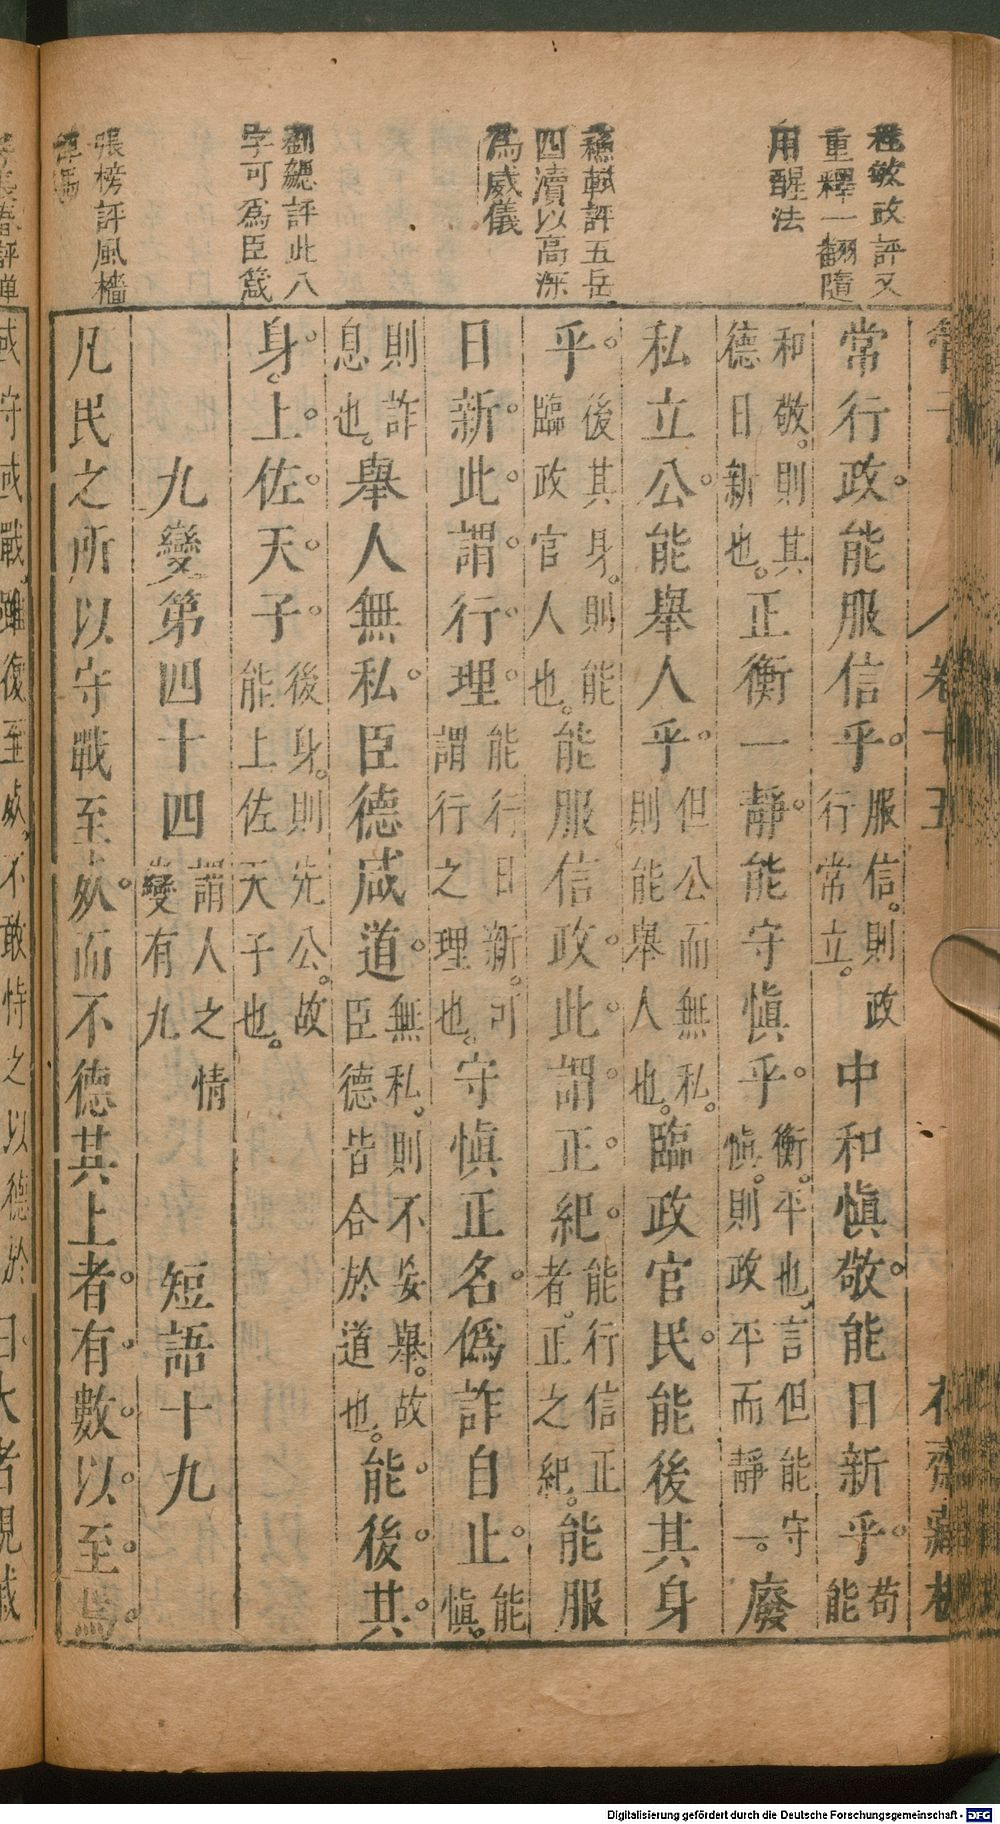 程敏政評又
重釋一翻隨
用醒法
蘇軾評五岳
四瀆以高深
爲威儀
劉勰評此八
字可爲臣箴
張榜評風檣
常行政能服信乎服信則政行常立中和慎敬能日新乎苟能
和敬則其德日新也正衡一靜能守慎乎衡平也言但能守慎則政平而靜一廢
私立公能舉人乎但公而無私則能舉人也臨政官民能後其身
乎後其身則能臨政官人也能服信政此謂正紀能行信正者正之紀能服
日新此謂行理能行日新可謂行之理也守慎正名僞詐自止能慎
則詐息也舉人無私臣德咸道無私則不妄舉故臣德皆合於道也能後其
身上佐天子能後身則先公故上佐天子也
九變第四十四謂人之情變有九 短語十九
凡民之所以守戰至死而不德其上者有數以至焉
卷十五
Digitalisierung gefördert durch die Deutsche Forschungsgemeinschaft - DFG